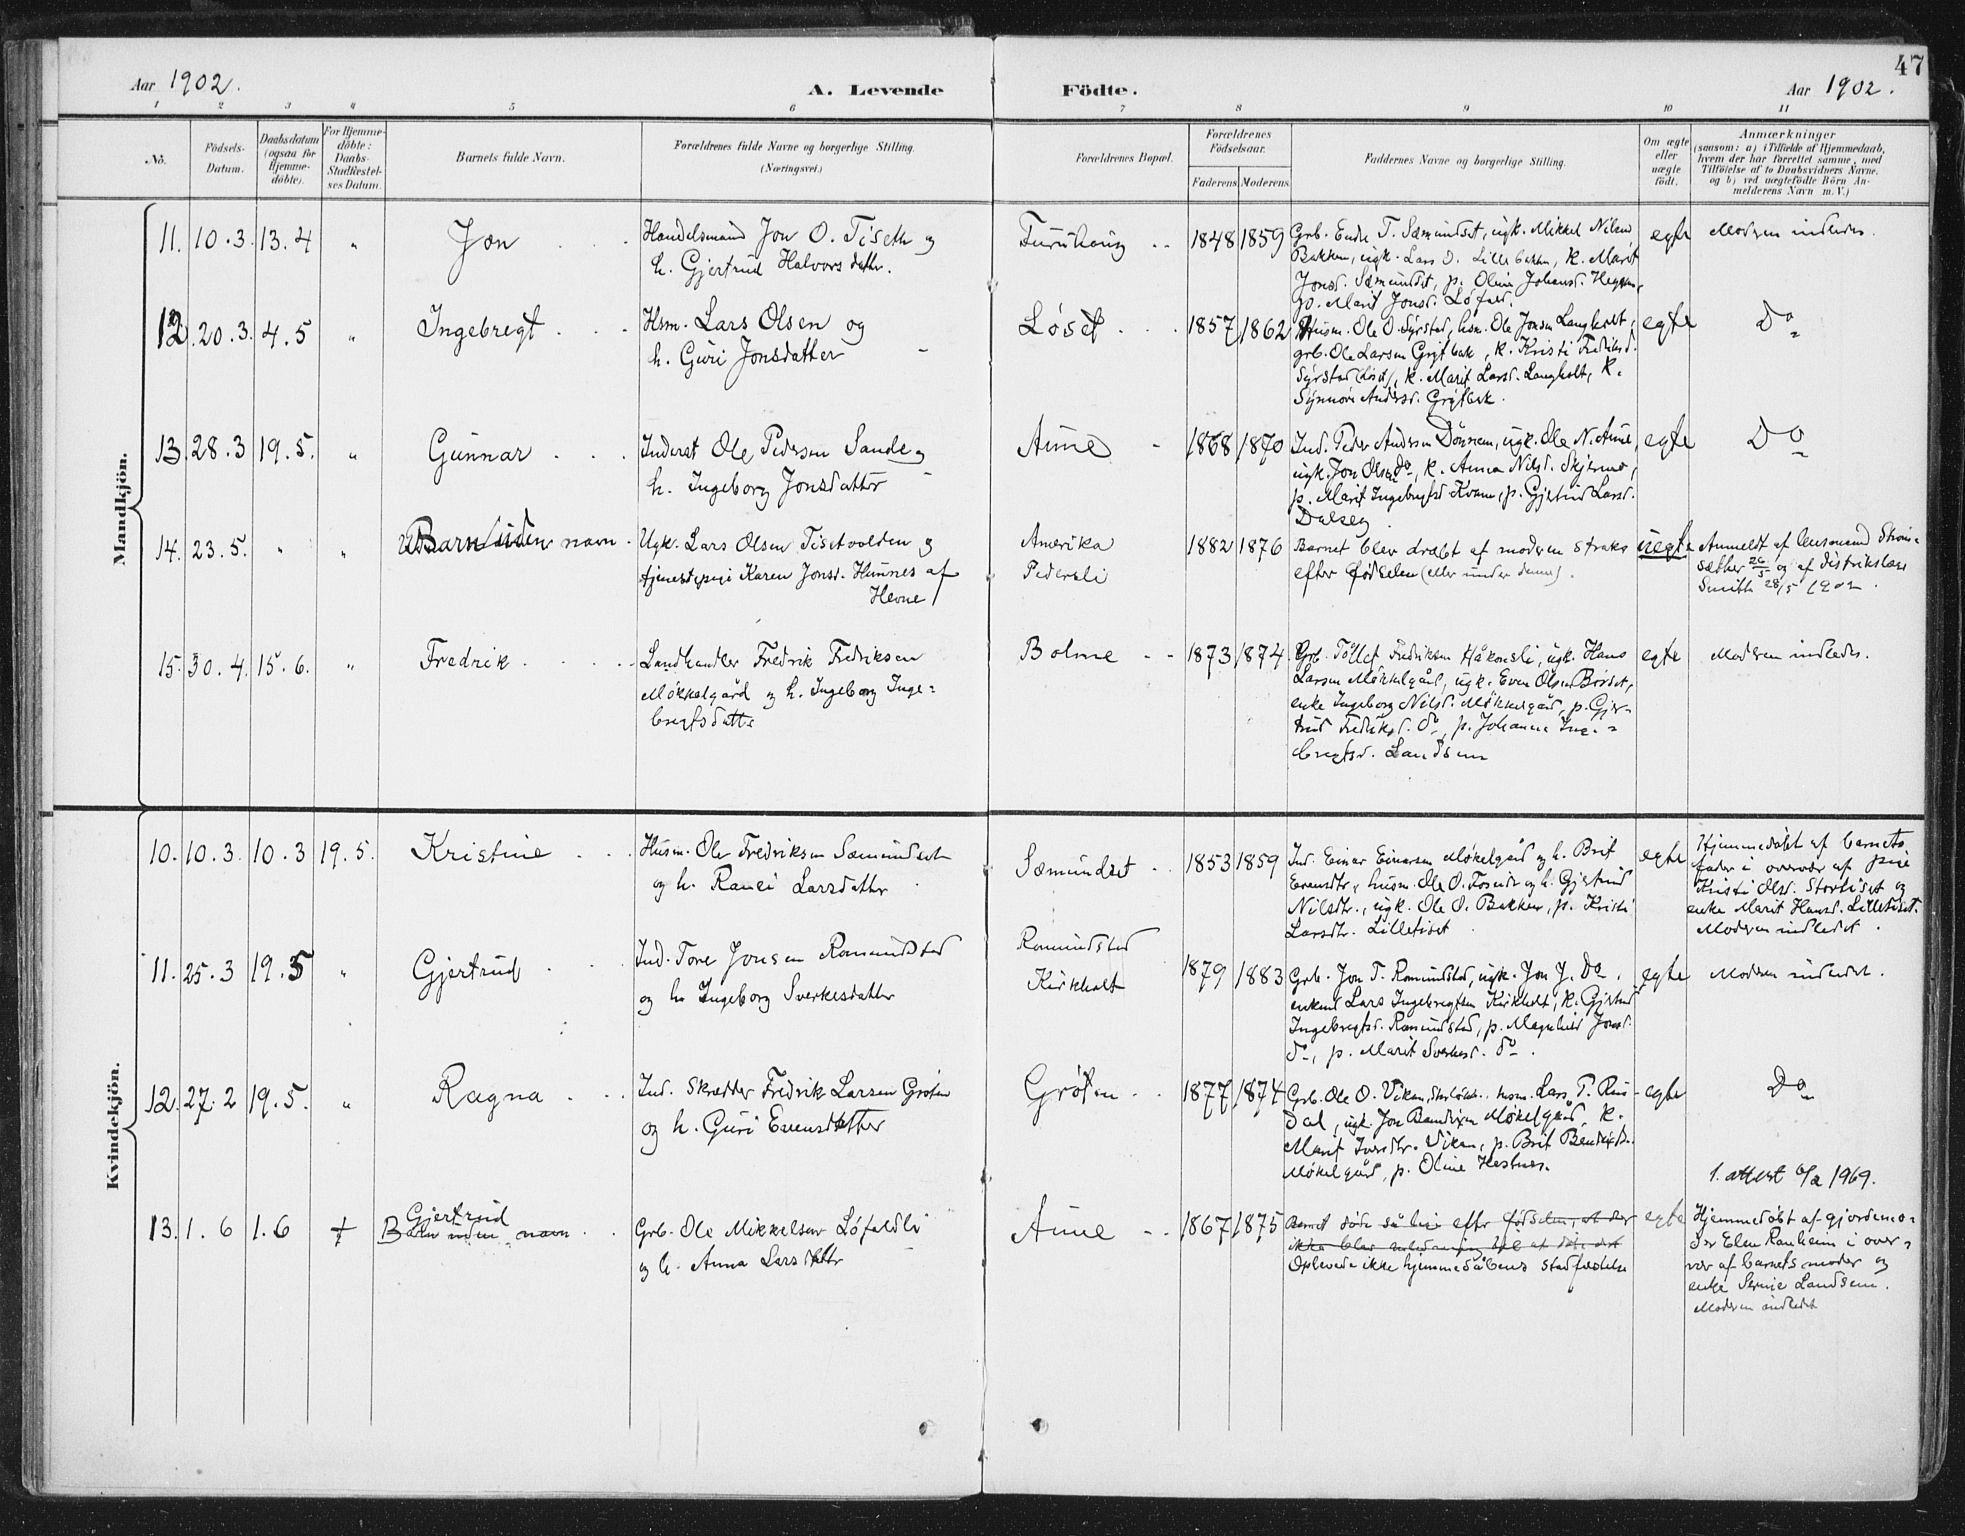 47
Aar 1902.
A. Levende Födte.
Aar 1902.
1 2 3 4 5 6 7 8 9 10 11
No.
Födsels-
Datum.
Daabsdatum
(ogsaa for
Hjemme-
döbte).
For Hjemme-
döbte:
Daabs-
Stadfæstel-
ses Datum.
Barnets fulde Navn.
Forældrenes fulde Navne og borgerlige Stilling.
(Næringsvei.)
Forældrenes Bopæl.
Forældrenes
Födselsaar.
Faderens Moderens
Faddernes Navne og borgerlige Stilling.
Om ægte
eller
uægte
födt.
Anmærkninger
(saasom: a) i Tilfælde af Hjemmedaab,
hvem der har forrettet samme, med
Tilföielse af to Daabsvidners Navne,
og b) ved uægtefödte Börn An-
melderens Navn m. V.)
Mandkjön.
11. 10.3. 13.4 " Jon
Handelsmand Jon O. Tiseth og
h. Gjertrud Halvorsdatter.
Furuhaug 1848 1859
Grb. Endre T. Sæmundset, ugk. Mikkel Nilsen
Bakken, ugk. Lars O. Lillebakken, k. Marit
Jonsd. Sæmundset, p. Oline Johansd.
p. Marit Jonsd. Løfald.
egte
Moderen indledet.
12. 20.3. 4.5 " Ingebregt
Hsm. Lars Olsen og
h. Guri Jonsdatter
Løset 1857 1862
Husm. Ole O. Syrstad, hsm. Ole Jonsen Langholt,
grb. Ole Larsen Grytbak, k. Kristi Fredriksd.
Syrstad (Løset), k. Marit Larsd. Langholt, k.
Synnøve Andersd. Grytbak.
egte
Do
13. 28.3 19.5. " Gunnar
Inderst Ole Pedersen Sande og
h. Ingeborg Jonsdatter
Aune 1868 1870
Ind. Peder Andersen Dønnem, ugk. Ole N. Aune,
ugk. Jon Olsen do, k. Anna Nilsd. Skjermo,
p. Marit Ingebregtsd. Kvam, p. Gjertrud Larsd.
Dalseg
egte
Do
14. 23.5. " " Barn uden navn
Ugk. Lars Olsen Tisetvolden og
tjenestepige Karen Jonsd. Hunnes af
Hevne
Amerika
Pedersli
1882 1876
Barnet blev dræbt af moderen straks
efter fødselen (eller under denne).
uegte
Anmeldt af lensmand Strøm-
sæther 26/5 og af distriktslæge
Smith 28/5 1902.
15. 30.4. 15.6. " Fredrik
Landhandler Fredrik Fredriksen
Møkkelgård og h. Ingeborg Inge-
bregtsdatter
Bolme 1873 1874
Grb. Tøllef Fredriksen Håkonsli, ugk. Hans
Larsen Møkkelgård, ugk. Even Olsen Borset,
enke Ingeborg Nilsd. Møkkelgård, p. Gjer-
trud Fredriksd. do, p. Johanna Inge-
bregtsd. Landsem
egte
Moderen indledes.
Kvindekjön.
10. 10.3. 10.3 19.5. Kristine
Husm. Ole Fredriksen Sæmundset
og h. Ranei Larsdatter
Sæmundset 1853 1859
Ind. Einar Einarsen Møkelgård og h. Brit
Evensdtr, husm. Ole O. Foseide og h. Gjertrud
Nilsdtr., ugk. Ole O. Bakken, p. Kristi
Larsdtr. Lilletiset
egte
Hjemmedøbt af barnets
fader i overvær af pige
Kristi Olsd. Stortiset og
enke Marit Hansd. Lilletiset.
Moderen indledet.
11. 25.3 19.5 " Gjertrud
Ind. Tore Jonsen Romundstad
og h. Ingeborg Sverkesdatter
Romundstad
Kirkholt
1879 1883
Grb. Jon T. Romundstad, ugk. Jon J. Do.
enkem. Lars Ingebregtsen Kirkholt, k. Gjertrud
Ingebregtsd. Romundstad, p. Magnhild Jonsd.
do, p. Marit Sverkesd. do.
egte
Moderen indledet.
12. 27.2 19.5. " Ragna
Ind. Skrædder Fredrik Larsen Grøten
og h. Guri Evensdatter
Grøten 1877 1874
Grb. Ole O. Viken, hsm. Lars T. Rin-
dal, ugk. Jon Bendixen Møkelgård, k.
Marit Iversdtr. Viken, p. Brit Bendixd.
Møkelgård, p. Oline Hestnes.
egte
Do
1. attest 6/2 1969.
13. 1.6 1.6 + Gjertrud
Barn uden navn
Grb. Ole Mikkelsen Løfaldli
og h. Anna Larsdatter
Aune 1867 1875
Barnet døde så lige efter fødselen, at der
ikke blev anledning til at døbe det
Oplevede ikke hjemmedåbens stadfæstelse
egte
Hjemmedøbt af gjordemo-
der Elen Ranheim i over-
vær af barnets moder og
enke Sernie Landsem.
Moderen indledet